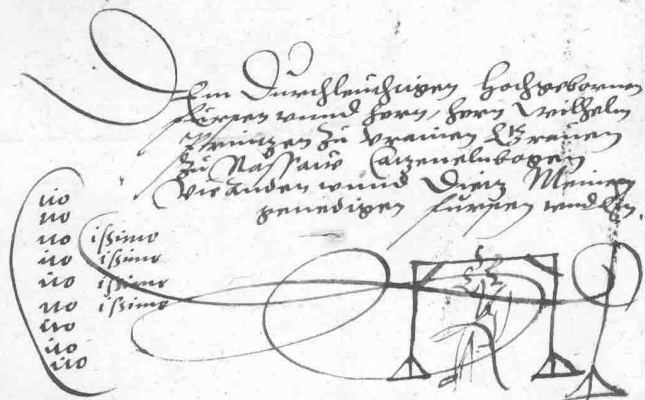 Dem Durchleuchtigen Hochgebornen
Fürsten unnd Hern, Hern Wilhelm
Printzen zu Uranien Graven
zu Nassaw Catzenelnbogen
Vianden unnd Dietz Meinem
genedigen Fursten
ito
ito
ito ißimo
ito ißimo
ito ißime
ito ißimo
ito
ito
ito